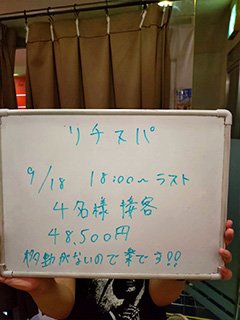 リチスパ
9/18 18:00~ラスト
4名様 接客
48,500円
移動がないので楽です!!